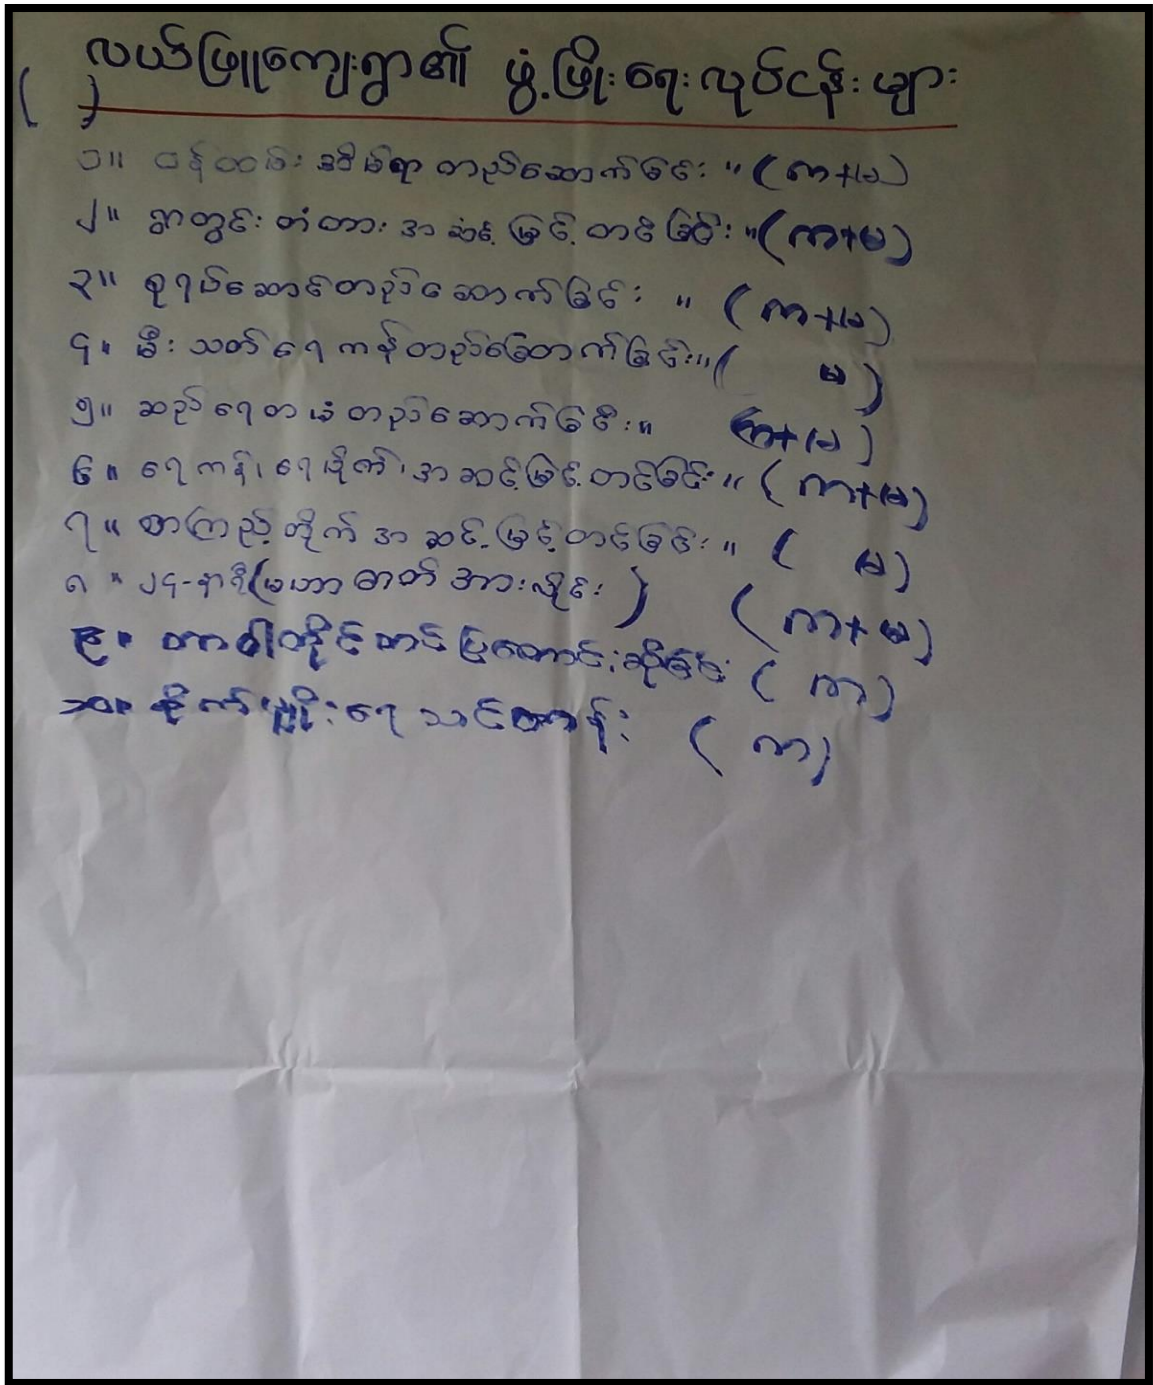 လယ်ဖြူကျေးရွာ၏ ဖွံ့ဖြိုးရေးလုပ်ငန်းများ
( )
၁။ ဝန်ထမ်းအိမ်ရာတည်ဆောက်ခြင်း။ (ကာ+မ)
၂။ ရွာတွင်းတံတားအဆင့်မြှင့်တင်ခြင်း။ (ကာ+မ)
၃။ စုရပ်ဆောင်တည်ဆောက်ခြင်း။ (ကာ+မ)
၄။ မီးသတ်ရေကန်တည်ဆောက်ခြင်း။ ( မ )
၅။ ဆည်ရေတမံတည်ဆောက်ခြင်း။ (ကာ+မ)
၆။ ရေကန်၊ ရေပိုက်၊ အဆင့်မြှင့်တင်ခြင်း။ (ကာ+မ)
၇။ စာကြည့်တိုက်အဆင့်မြှင့်တင်ခြင်း။ ( မ )
၈။ ၂၄-နာရီ(မဟာဓာတ်အားလိုင်း) (ကာ+မ)
၉။ တာဝါတိုင် ( ကာ )
၁၀။ စိုက်ပျိုးရေသင်တန်း ( ကာ )